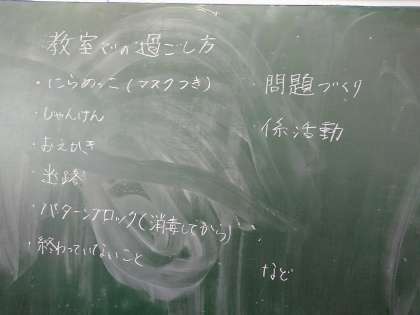 教室での過ごし方
・にらめっこ(マスクつき)
・じゃんけん
・おえかき
・迷路
・パターンブロック(消毒してから)
・終わっていないこと
・問題づくり
・係活動
など